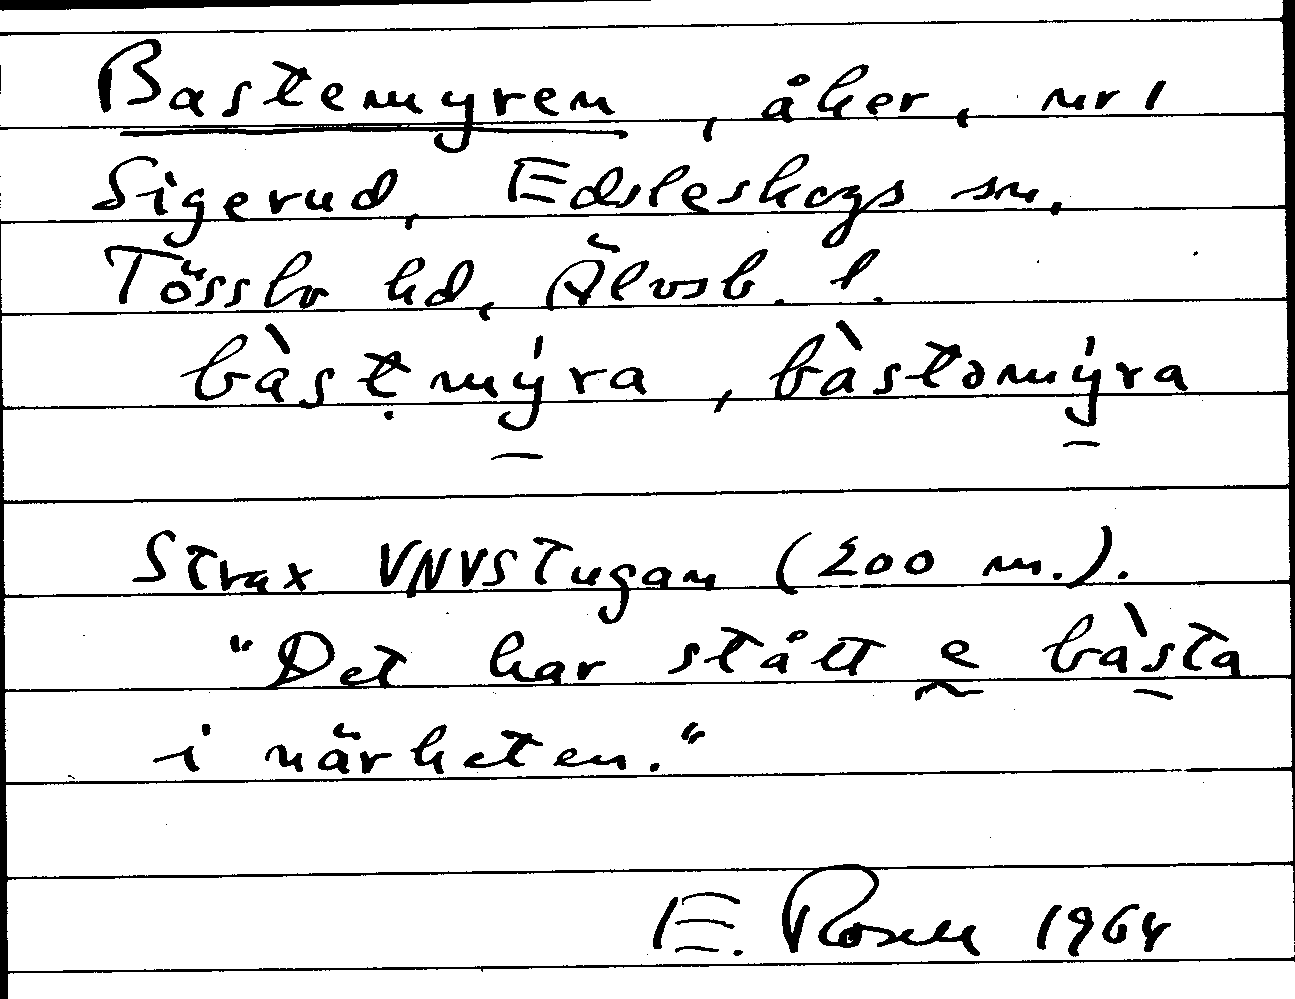 Bastemyren, åker, nr 1
Sigerud, Edsleskogs sn.
Tössbo hd, Älvsb. l.
bàst̩mýra, bàstəmýra
Strax VNVStugan (200 m.).
"Det har stått e bàsta
i närheten."
E. Rosell 1964